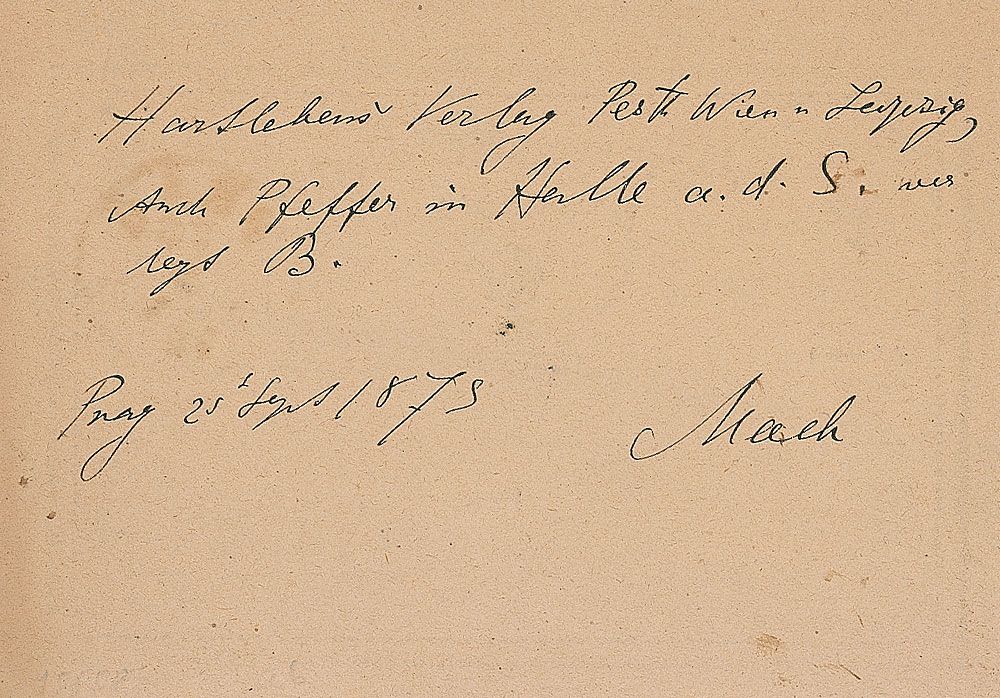 Hartlebens Verlag Pesth Wien u Leipzig,
Auch Pfeffer in Halle a. d. S. ver
legt B.
Prag 25 Sept 1875
Mach